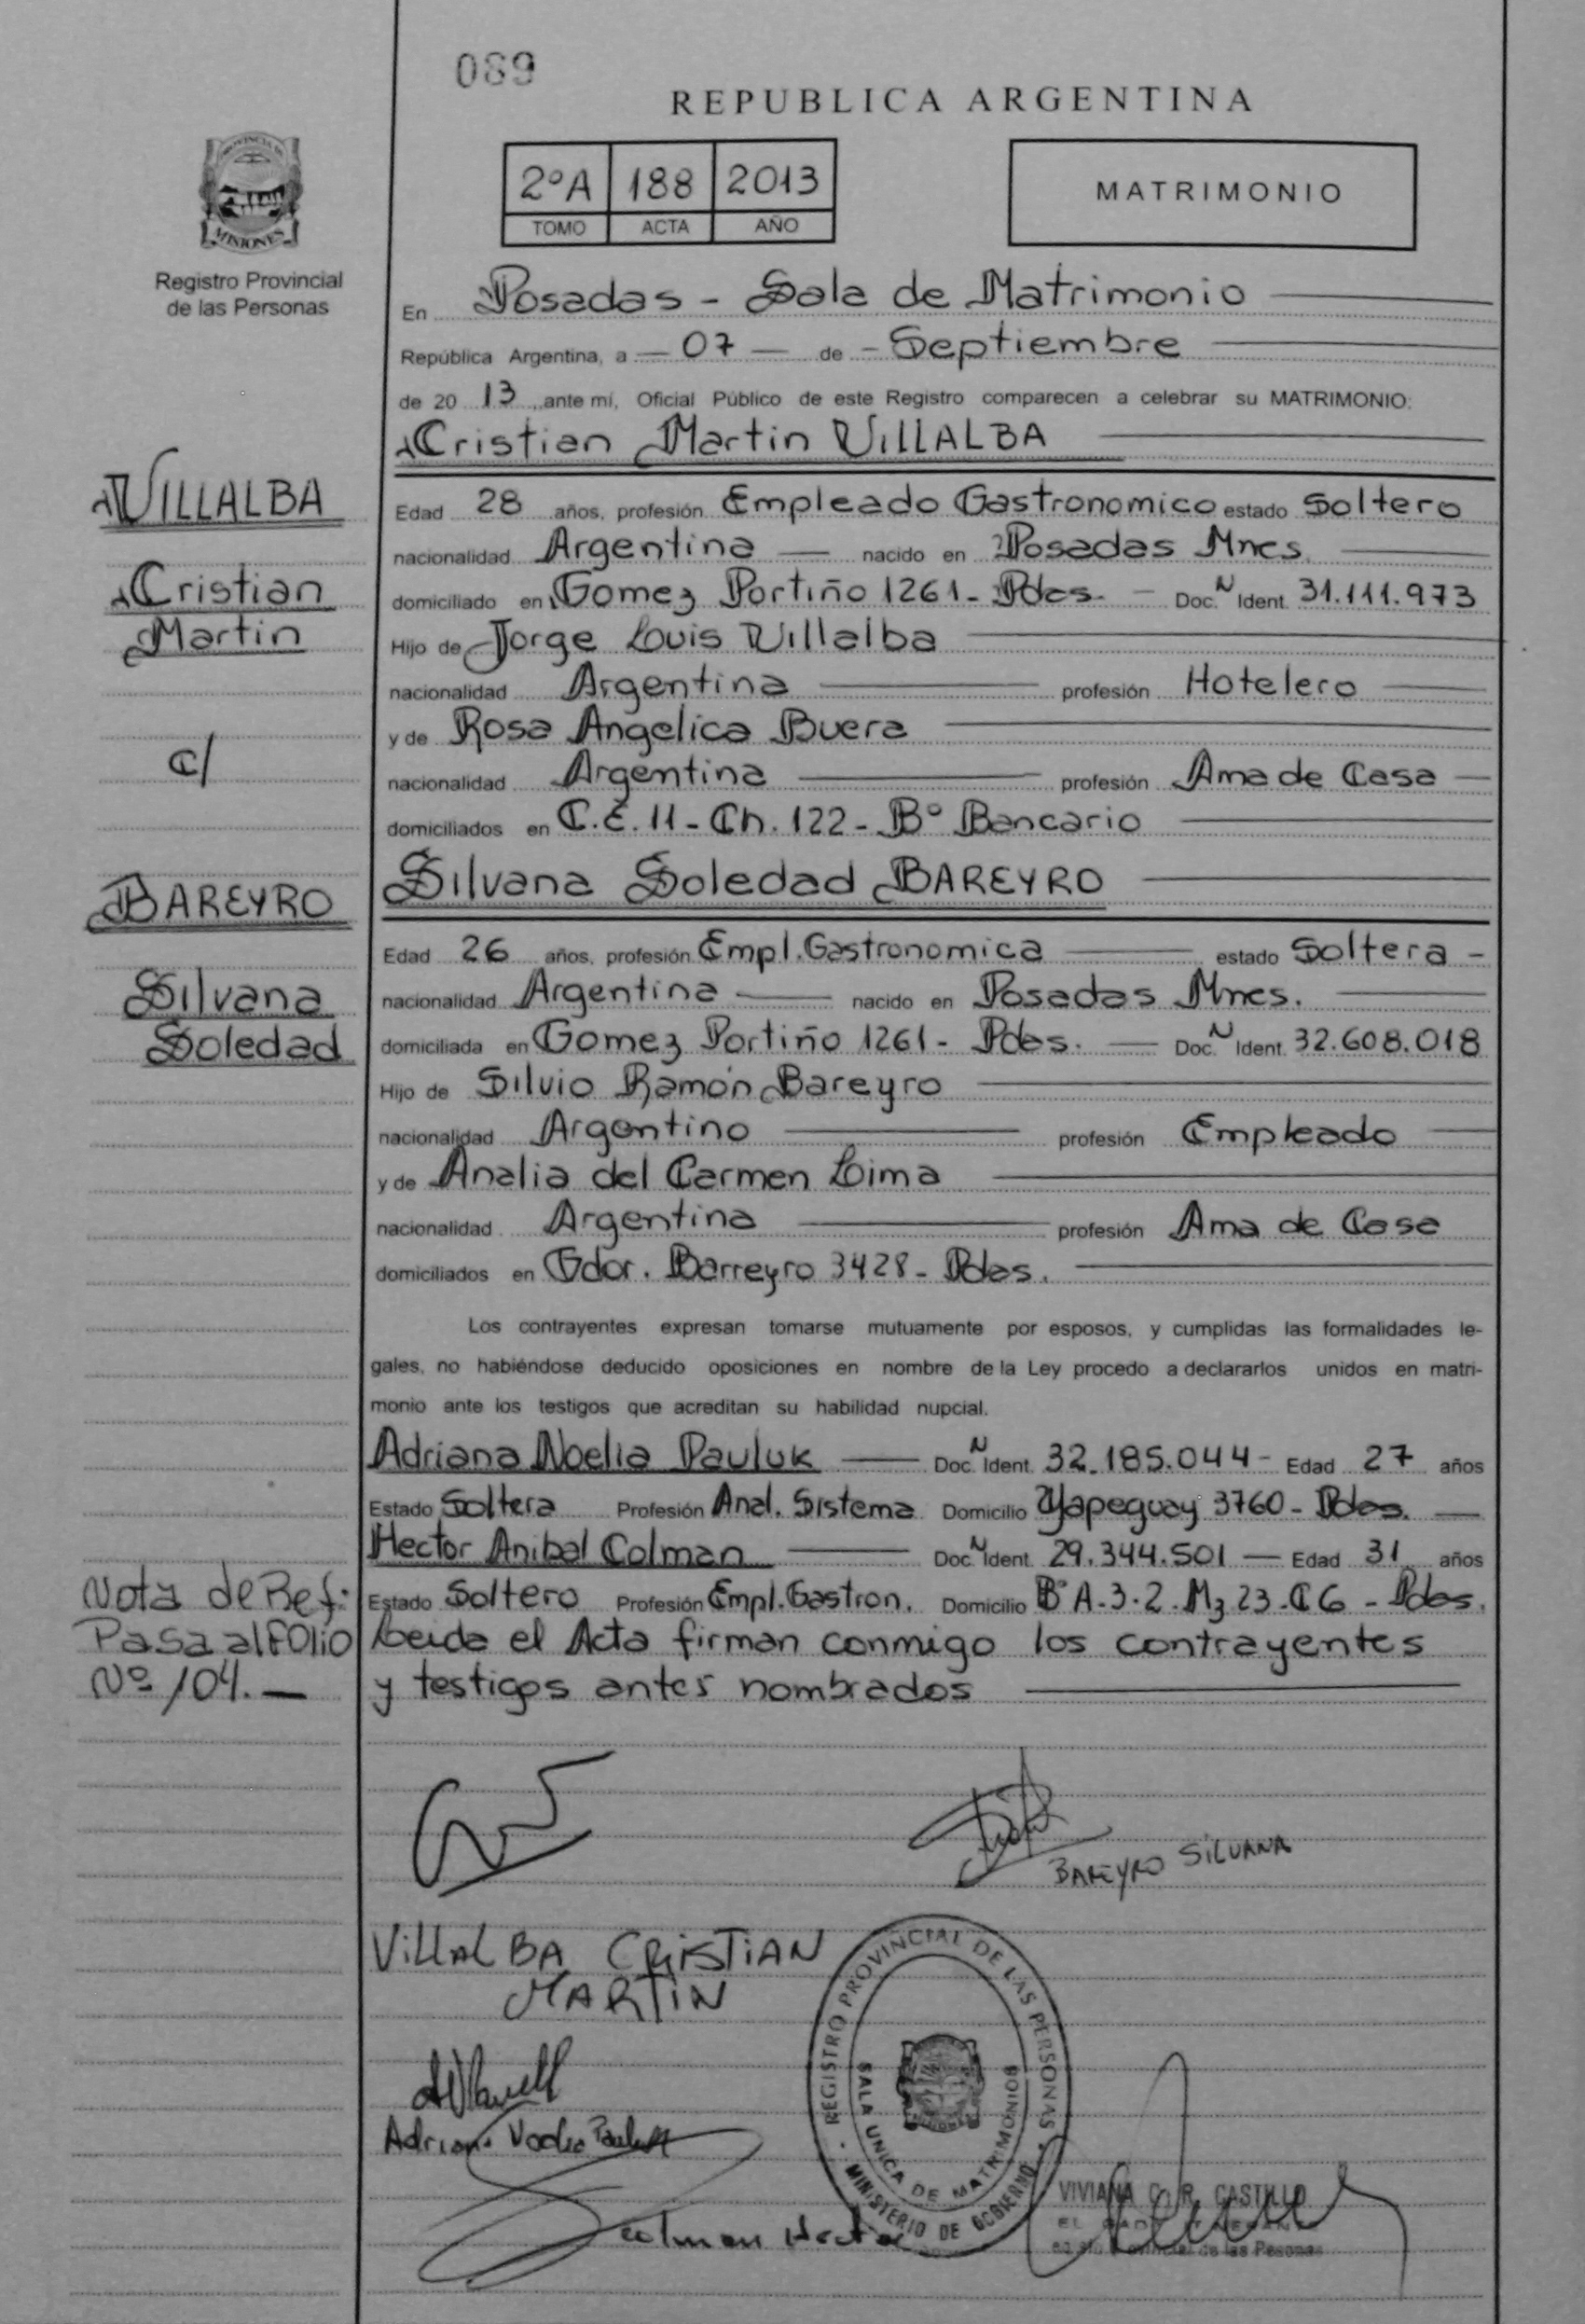 089
REPUBLICA ARGENTINA
2ºA 188 2013
TOMO ACTA AÑO
MATRIMONIO
PROVINCIA DE
MISIONES
Registro Provincial
de las Personas
En Posadas - Sala de Matrimonio
República Argentina, a 07 de Septiembre
de 20 13 ante mi, Oficial Público de este Registro comparecen a celebrar su MATRIMONIO:
Cristian Martin VILLALBA
VILLALBA
Cristian
Martin
C/
BAREYRO
Silvana
Soledad
Edad 28 años, profesión Empleado Gastronomico estado Soltero
nacionalidad Argentina nacido en Posadas Mnes.
domiciliado en Gomez Portiño 1261 - Pdas. - Doc. N Ident. 31.111.973
Hijo de Jorge Luis Villalba
nacionalidad Argentina profesión Hotelero
y de Rosa Angelica Buera
nacionalidad Argentina profesión Ama de Casa
domiciliados en C.E. 11 - Ch. 122 - Bº Bancario
Silvana Soledad BAREYRO
Edad 26 años, profesión Empl. Gastronomica estado Soltera -
nacionalidad Argentina nacido en Posadas Mnes.
domiciliada en Gomez Portiño 1261 - Pdas. Doc. N Ident. 32.608.018
Hijo de Silvio Ramón Bareyro
nacionalidad Argentino profesión Empleado
y de Analia del Carmen Lima
nacionalidad Argentina profesión Ama de Casa
domiciliados en Gdor. Barreyro 3428 - Pdas.
Los contrayentes expresan tomarse mutuamente por esposos, y cumplidas las formalidades le-
gales, no habiéndose deducido oposiciones en nombre de la Ley procedo a declararlos unidos en matri-
monio ante los testigos que acreditan su habilidad nupcial.
Adriana Noelia Pauluk Doc. N Ident. 32.185.044 - Edad 27 años
Estado Soltera Profesión Anal. Sistema Domicilio Yapeguay 3760 - Pdas.
Hector Anibal Colman Doc. N Ident. 29.344.501 Edad 31 años
Estado Soltero Profesión Empl. Gastron. Domicilio Bº A-3-2 Mz 23 - C 6 - Pdas.
Leida el Acta firman conmigo los contrayentes
y testigos antes nombrados
Nota de Ref:
Pasa al FOLIO
Nº 104.
BAREYRO SILVANA
VILLALBA CRISTIAN
MARTIN
Adriana Noelia Pauluk
Colman Hector
REGISTRO PROVINCIAL DE LAS PERSONAS
SALA UNICA DE MATRIMONIOS
MINISTERIO DE GOBIERNO
VIVIANA C. R. CASTILLO
de las Personas